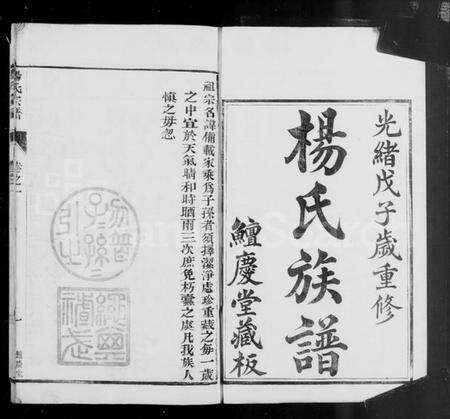 光緒戊子歲重修
楊氏族譜
鱣慶堂藏板
祖宗名諱備載家乘爲子孫者須擇潔淨處珍重藏之每一歲
之中宜於天氣晴和時晒兩三次庶免朽蠹之虞凡我族人
慎之毋忽
楊氏宗譜
卷之一